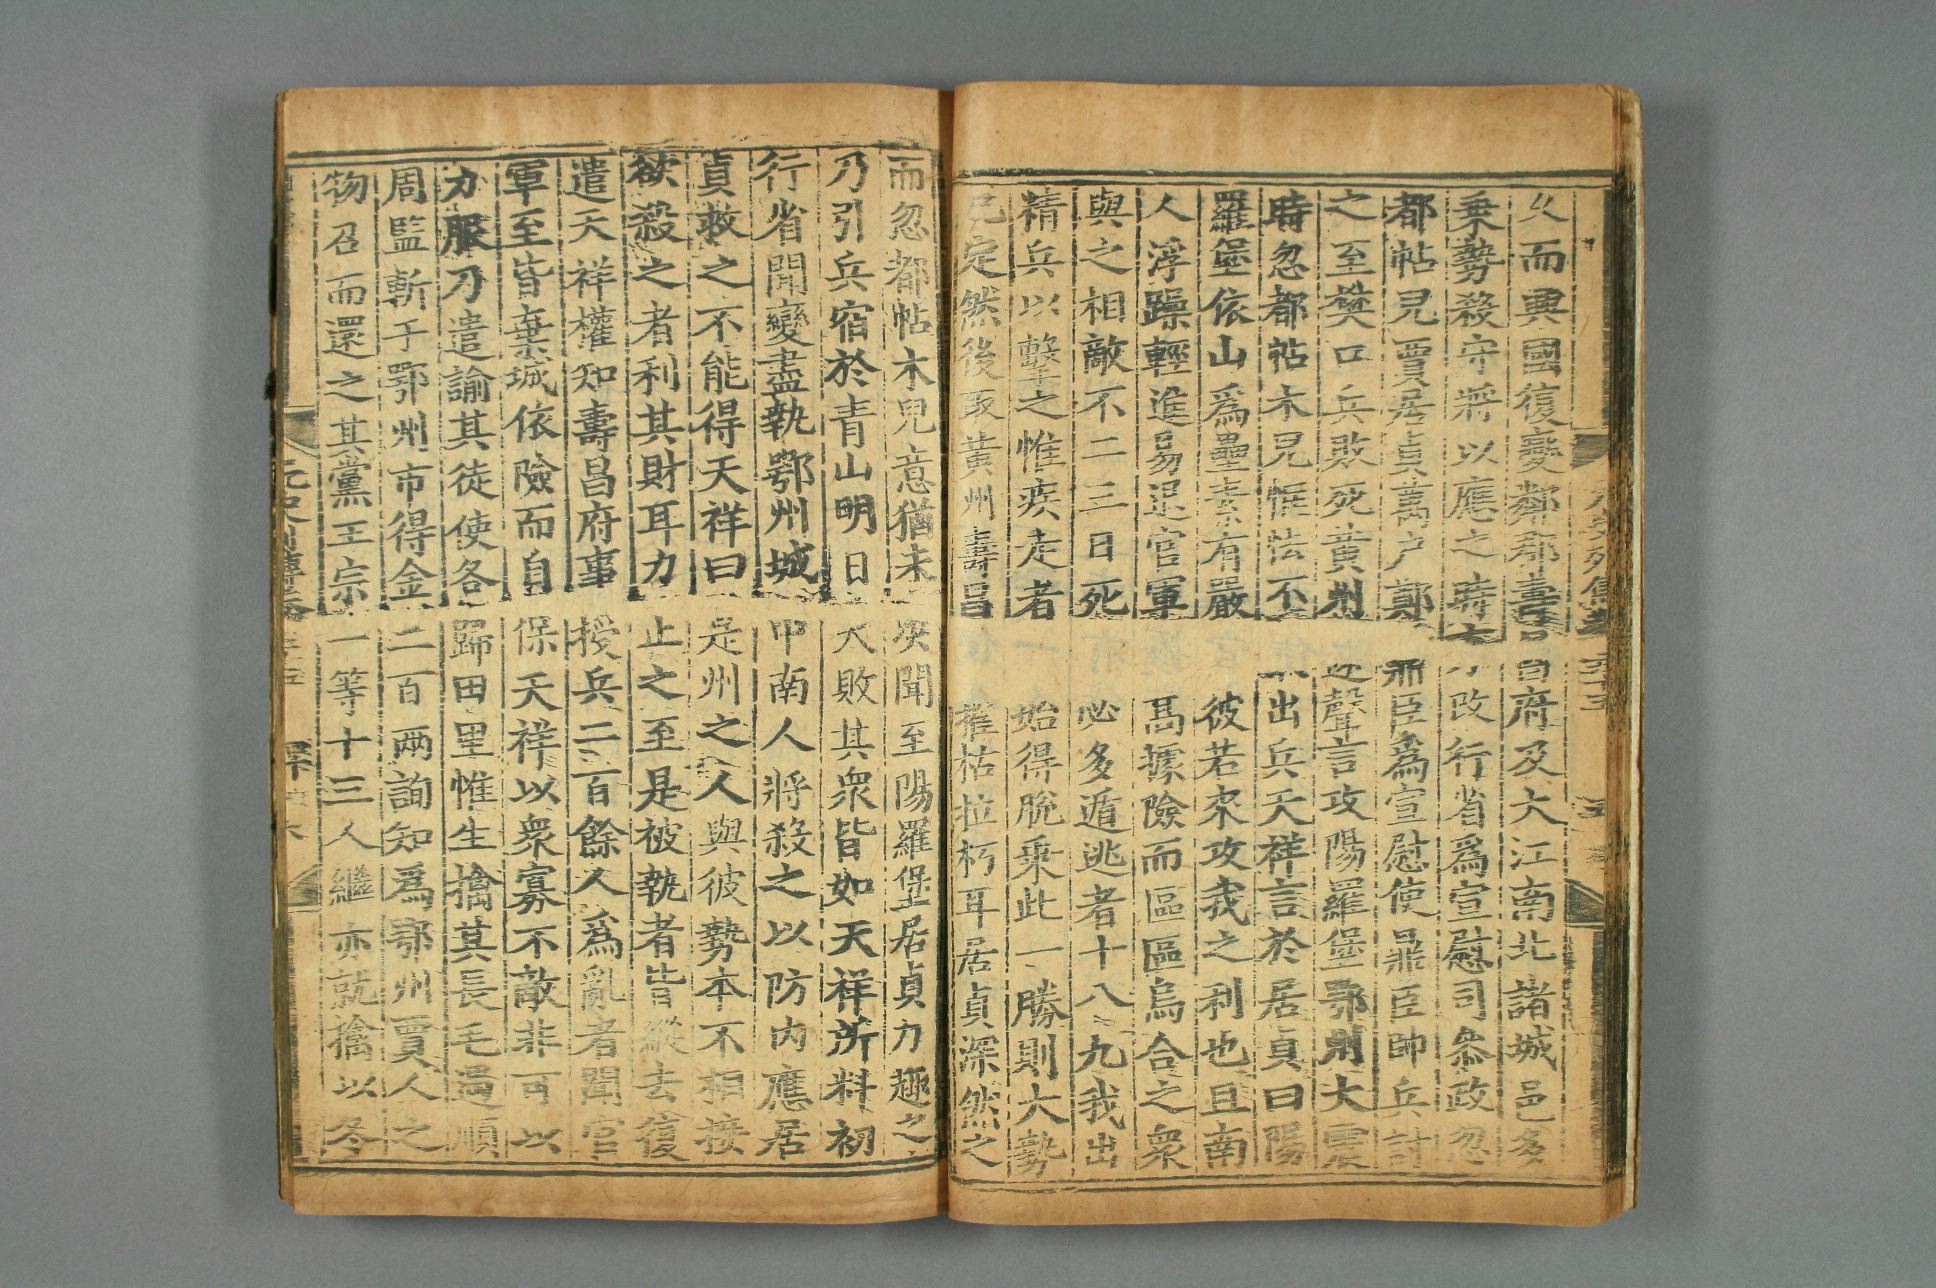 乆而興國復變鄰郡壽昌府及大江南北諸城邑多
乗勢殺守將以應之時方改行省爲宣慰司叅政忽
都帖兒賈居貞萬户鄭鼎臣爲宣慰使鼎臣帥兵討
之至樊口兵敗死黄州遂聲言攻陽羅堡鄂州大震
時忽都帖木兒恇怯不出兵天祥言於居貞曰陽
羅堡依山爲壘素有嚴彼若來攻我之利也且南
人浮躁輕進易退官軍髙據險而區區烏合之衆
與之相敵不二三日死必多遁逃者十八九我出
精兵以擊之惟疾走者始得脱乗此一勝則大勢
已定然後取黄州壽昌摧枯拉朽耳居貞深然之
而忽都帖木兒意猶未決聞至陽羅堡居貞力趣之
乃引兵宿於青山明日大敗其衆皆如天祥所料初
行省聞變盡執鄂州城中南人將殺之以防内應居
貞救之不能得天祥曰是州之人與彼勢本不相接
欲殺之者利其財耳力止之至是被執者皆縱去復
遣天祥權知壽昌府事授兵二百餘人爲亂者聞官
軍至皆棄城依險而自保天祥以衆寡不敵非可以
力服乃遣諭其徒使各歸田里惟生擒其長毛遇順
周監斬于鄂州市得金二百兩詢知爲鄂州賈人之
物召而還之其黨王宗一等十三人繼亦就擒以冬